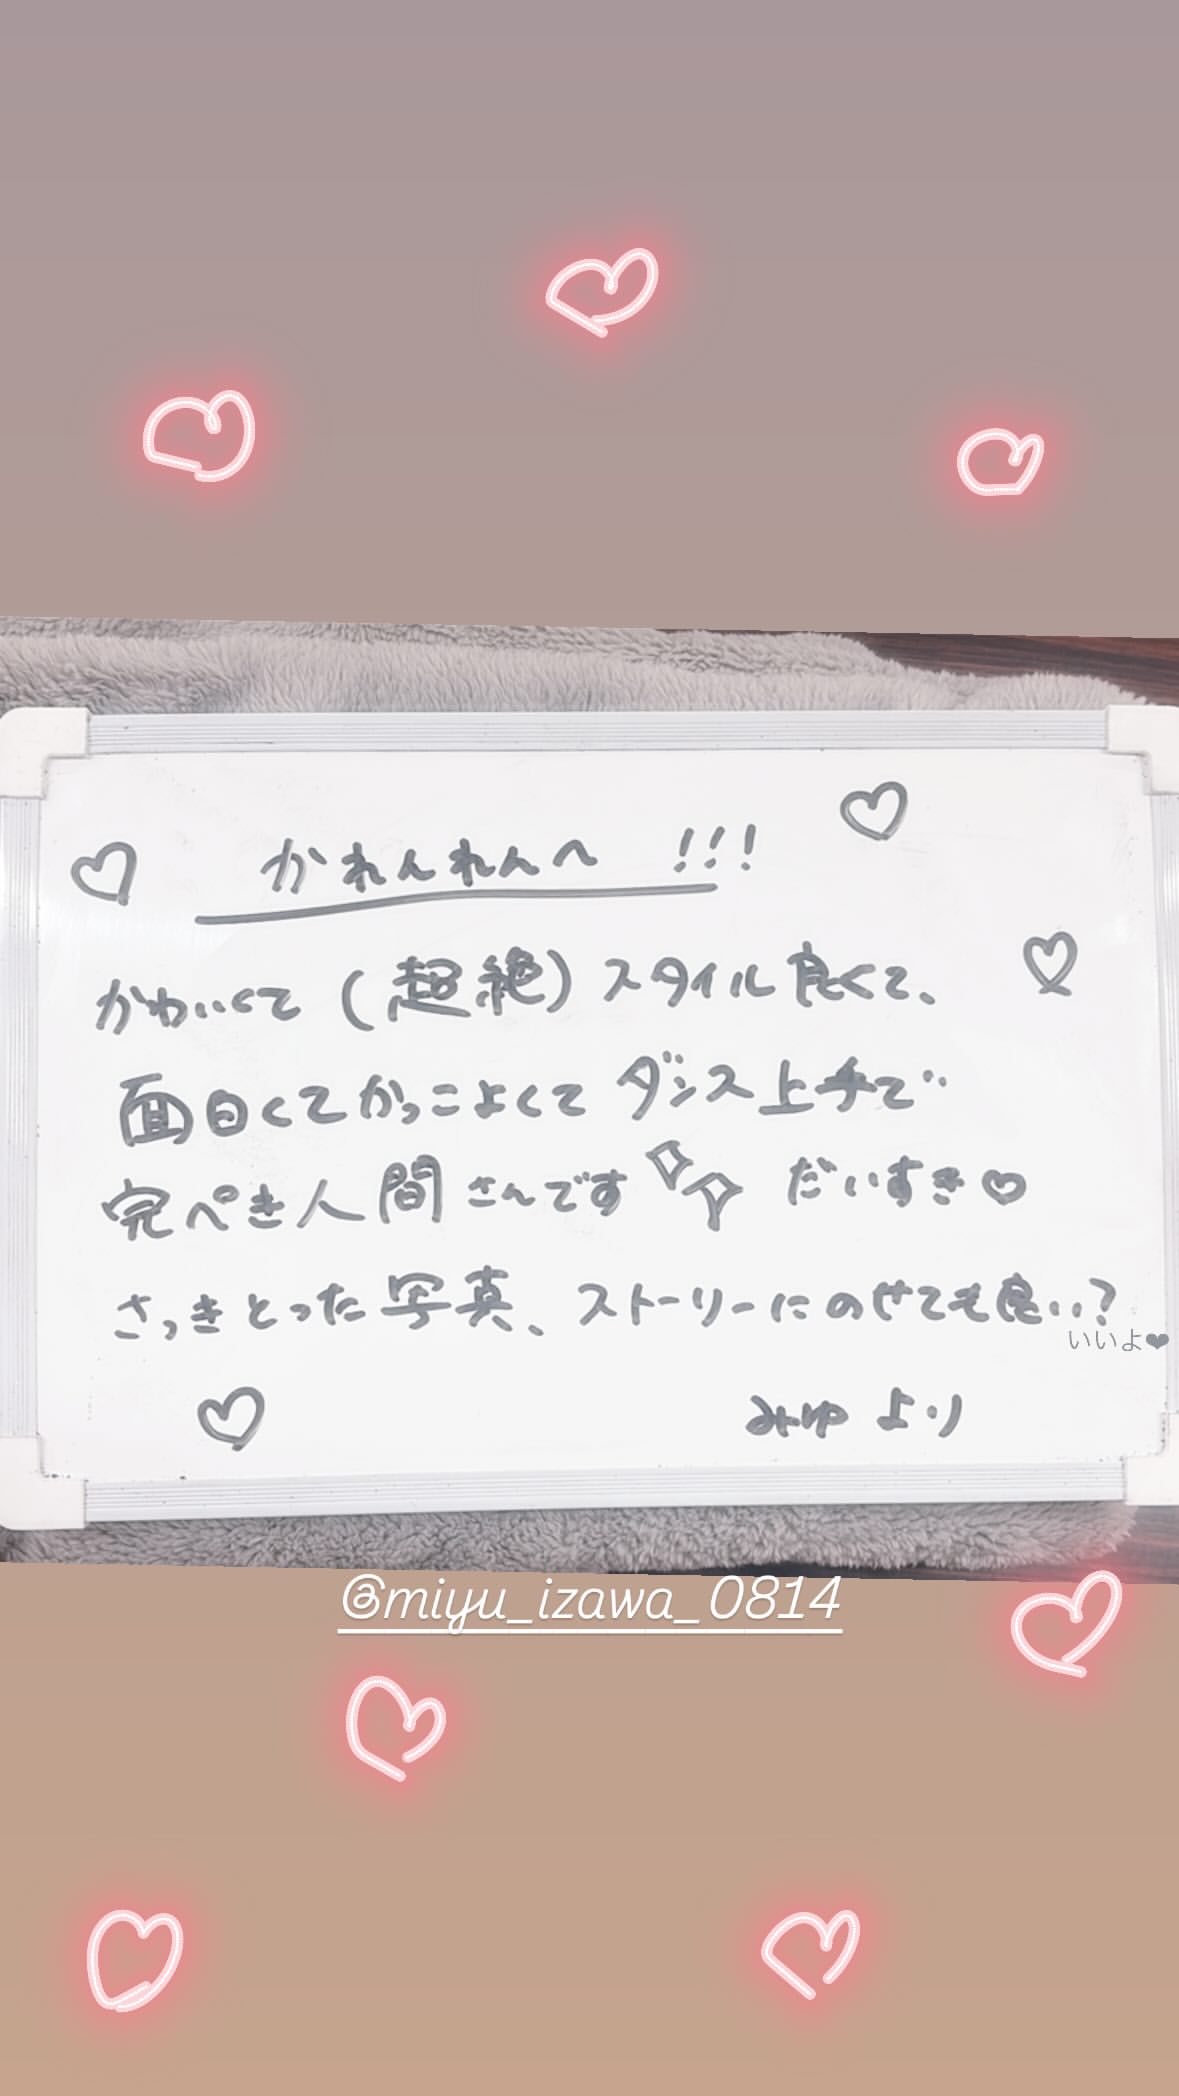 かれんれんへ !!!
かわいくて(超絶)スタイル良くて、
面白くてかっこよくてダンス上手で
完ぺき人間さんです だいすき♡
さっきとった写真、ストーリーにのせても良い?
いいよ❤
みゆより
@miyu_izawa_0814